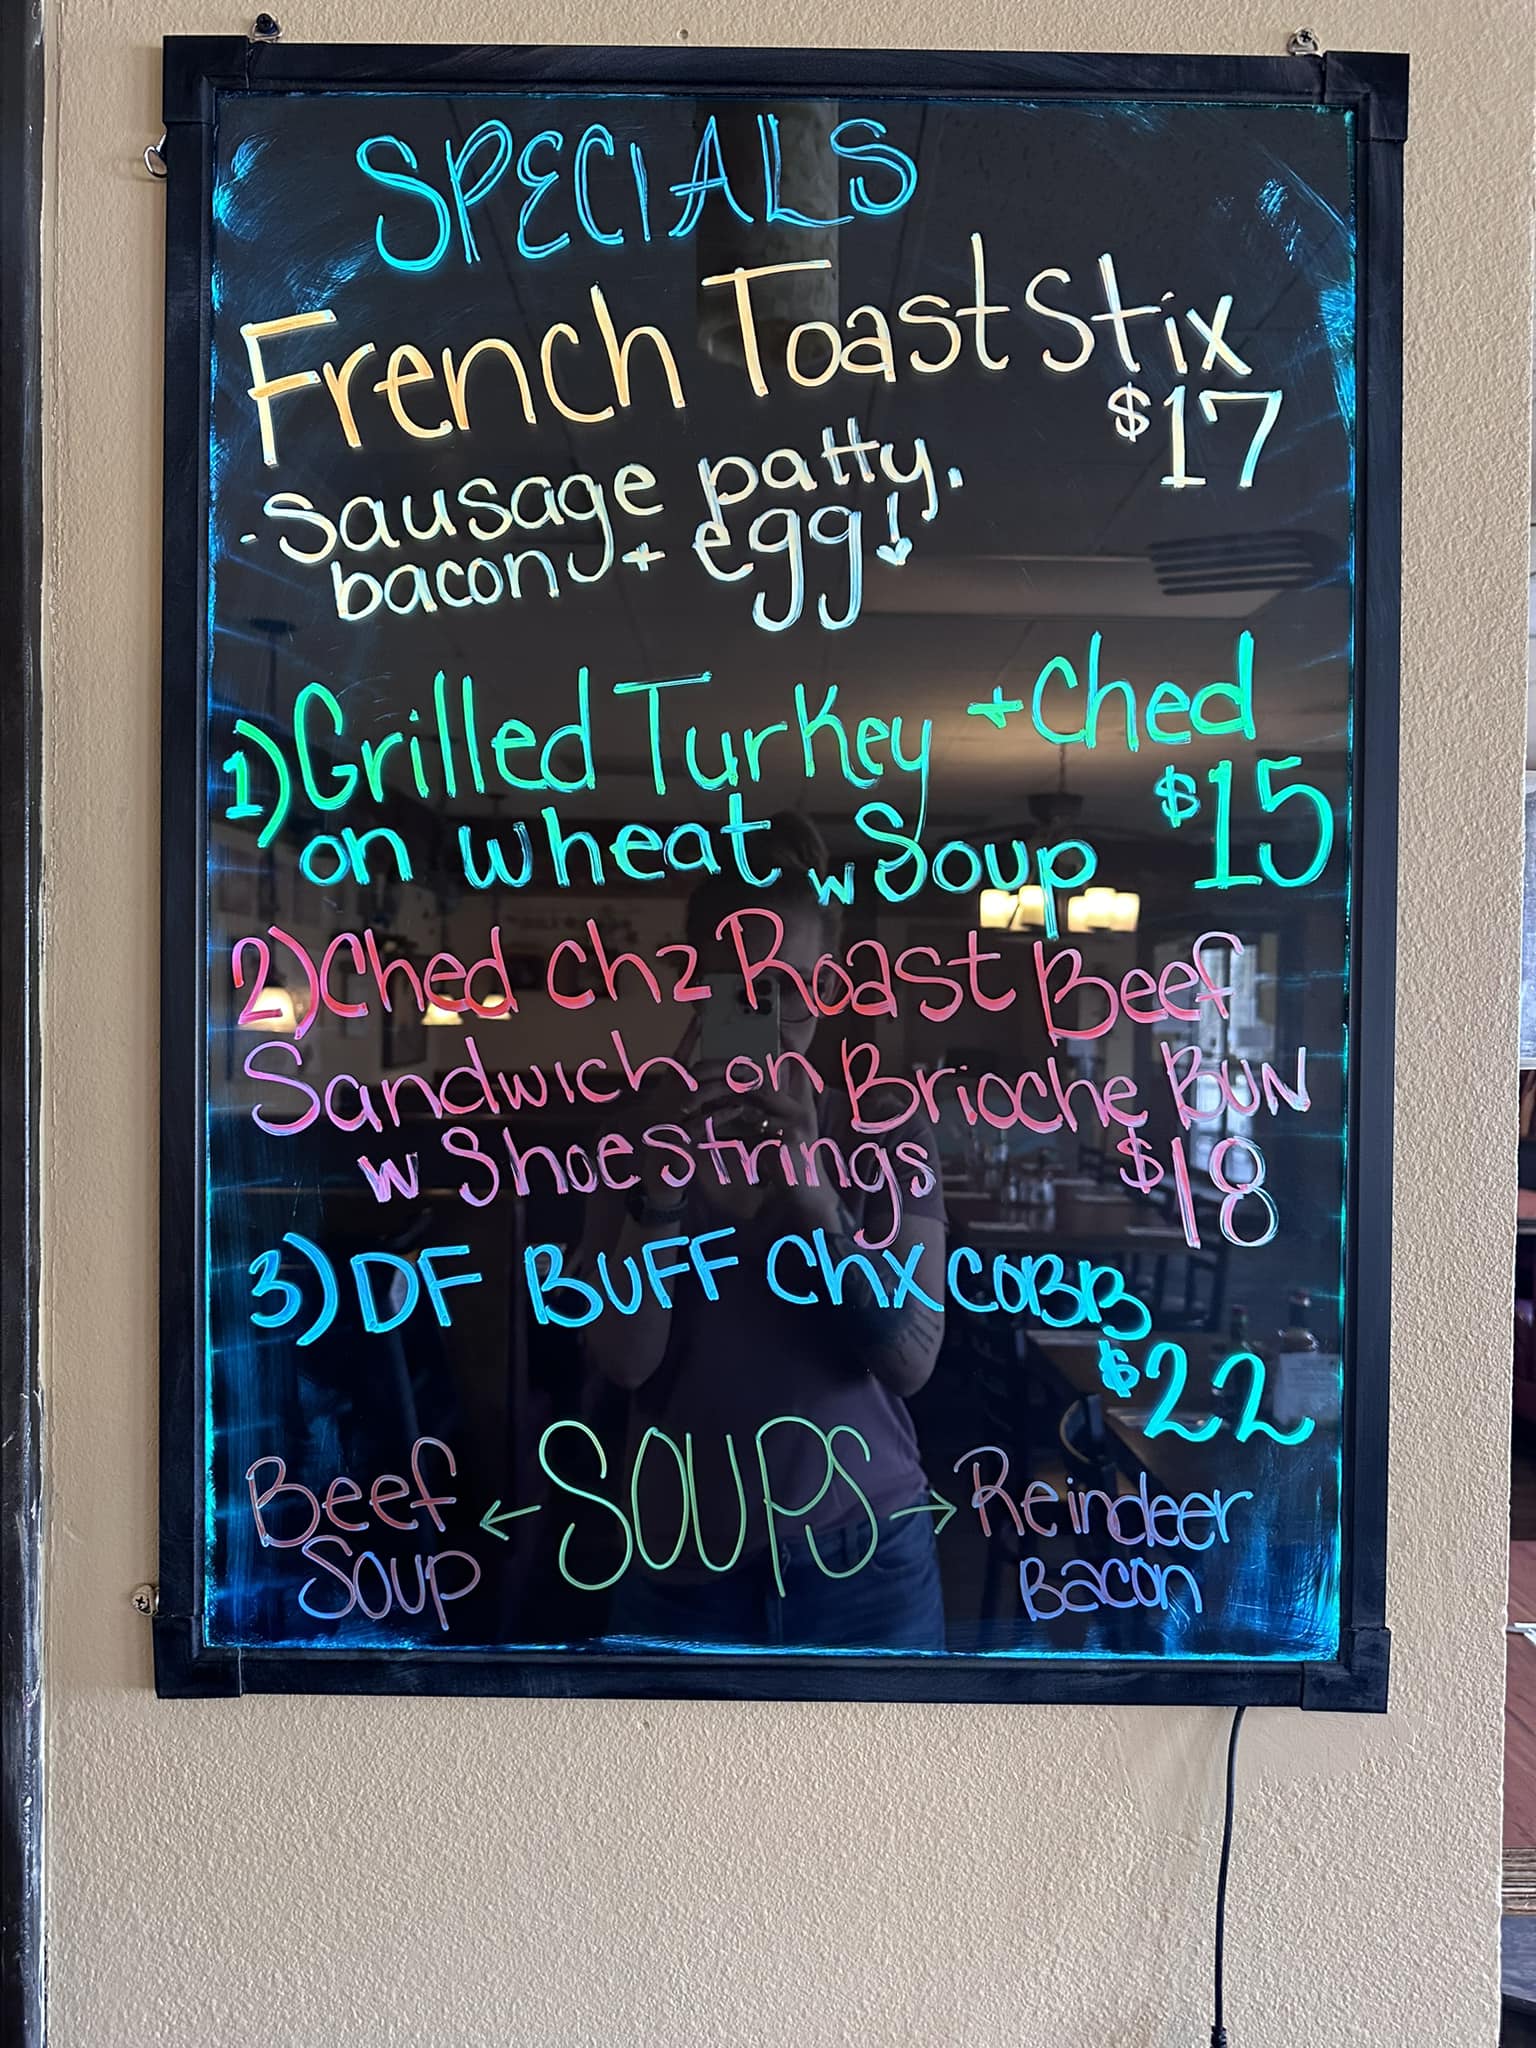 SPECIALS
French Toast Stix
$17
- Sausage patty,
bacon + egg!
1) Grilled Turkey + Ched
on wheat w Soup $15
2) Ched chz Roast Beef
Sandwich on Brioche BUN
w Shoestrings $18
3) DF BUFF Chx COBB
$22
Beef ← SOUPS → Reindeer
Soup Bacon